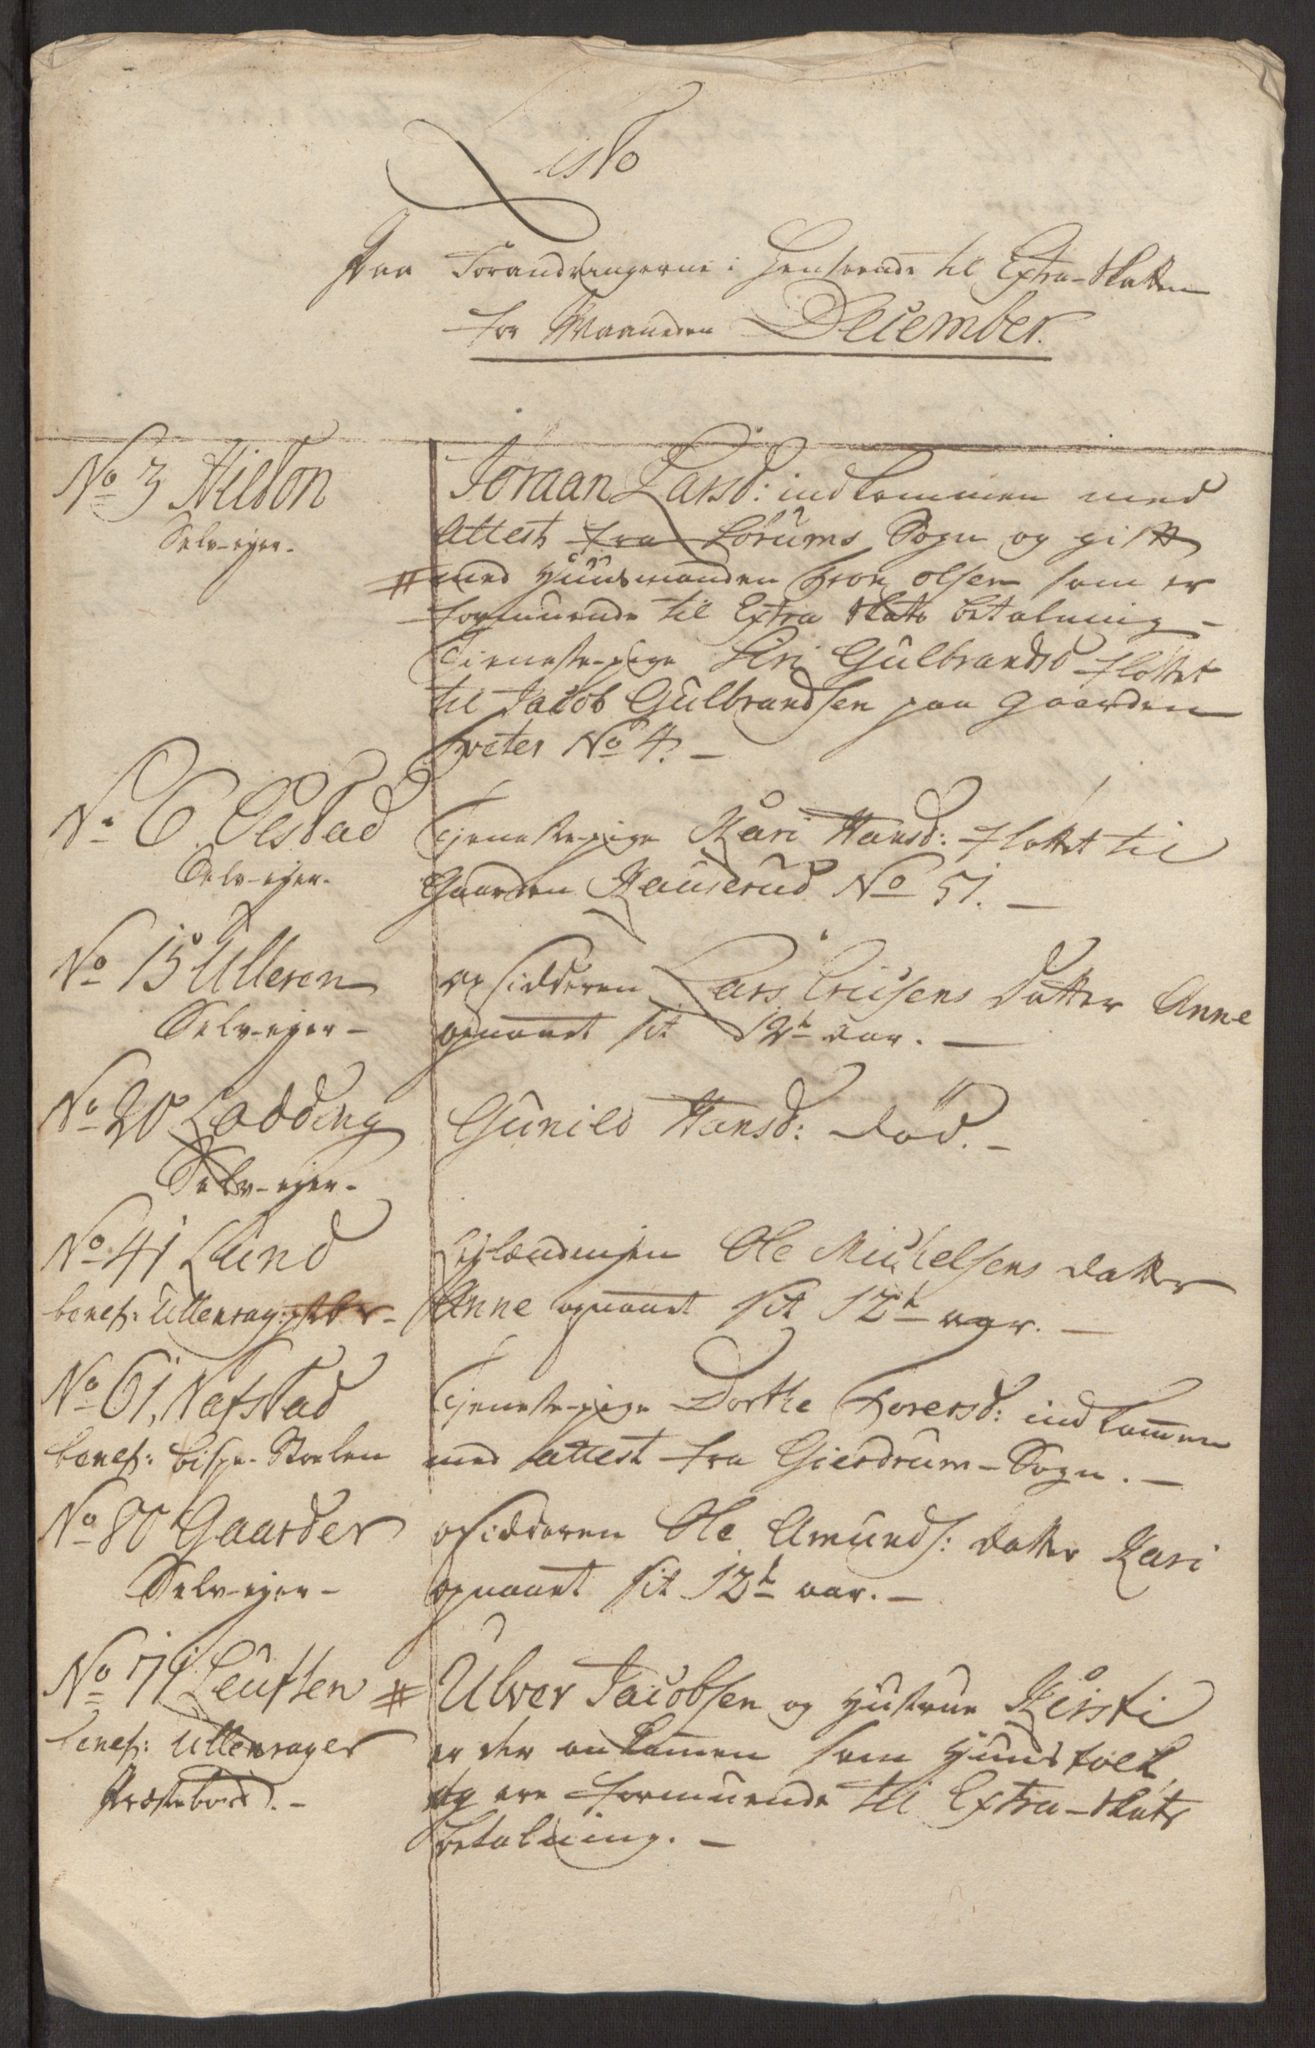 Liste
Paa Forandringerne i Henseende til Extra-Skatten
for Maaneden December.
No 3 Hilton
Selv-eyer-
Joraan Larsd: indkommen med
Attest fra Sørums Sogn og gift
# med Huusmanden Tron Olsen som er
formuende til Extra Skats betalning -
Tieneste-pige Siri Gulbrandsd fløttet
til Jacob Gulbrandsen paa Gaarden
Tveter No 4. -
No 6 Olstad
Selv-eyer-
Tjeneste-pige Kari Hansd: fløttet til
Gaarden Kauserud No 51. -
No 15 Ulleren
Selv-eyer -
opsidderen Lars Crichsens datter Anne
opnaaet sit 12te aar. -
No 20 Lodding
Selv-eyer-
Gunild Hansd: död. -
No 41 Lund
benef: Ullensag: 
Leylændingen Ole Michelsens datter
Anne opnaaet sit 12te aar. -
No 61, Nafstad
benef: Bispe-Stoelen
Tjeneste-pige Dorthe Torersd: indkommen
med attest fra Gierdrum-Sogn. -
No 80 Gaarder
Selv-eyer -
opsidderen Ole Amunds: datter Kari
opnaaet sit 12te aar. -
No 71 Leutten
benef: Ullensager
Præstebord. -
# Ulver Jacobsen og Hustrue Kirsti
er der ankommen som Huusfolk
og ere formuende til Extra-Skats
betalning. -